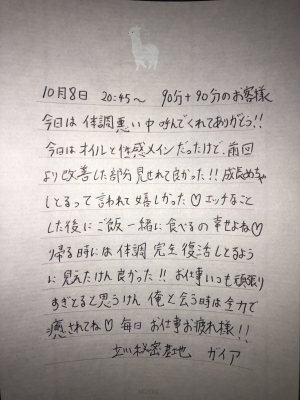 10月8日 20:45〜 90分+90分のお客様
今日は体調悪い中呼んでくれてありがとう!!
今日はオイルと性感メインだったけど、前回
より改善した部分見せれて良かった!!成長めちゃ
しとるって言われて嬉しかった♡エッチなこと
した後にご飯一緒に食べるの幸せよね♡
帰る時には体調完全復活しとるよう
に見えたけん良かった!!お仕事いつも頑張り
すぎとると思うけん俺と会う時は全力で
癒されてね♡毎日お仕事お疲れ様!!
秘密基地 ガイア